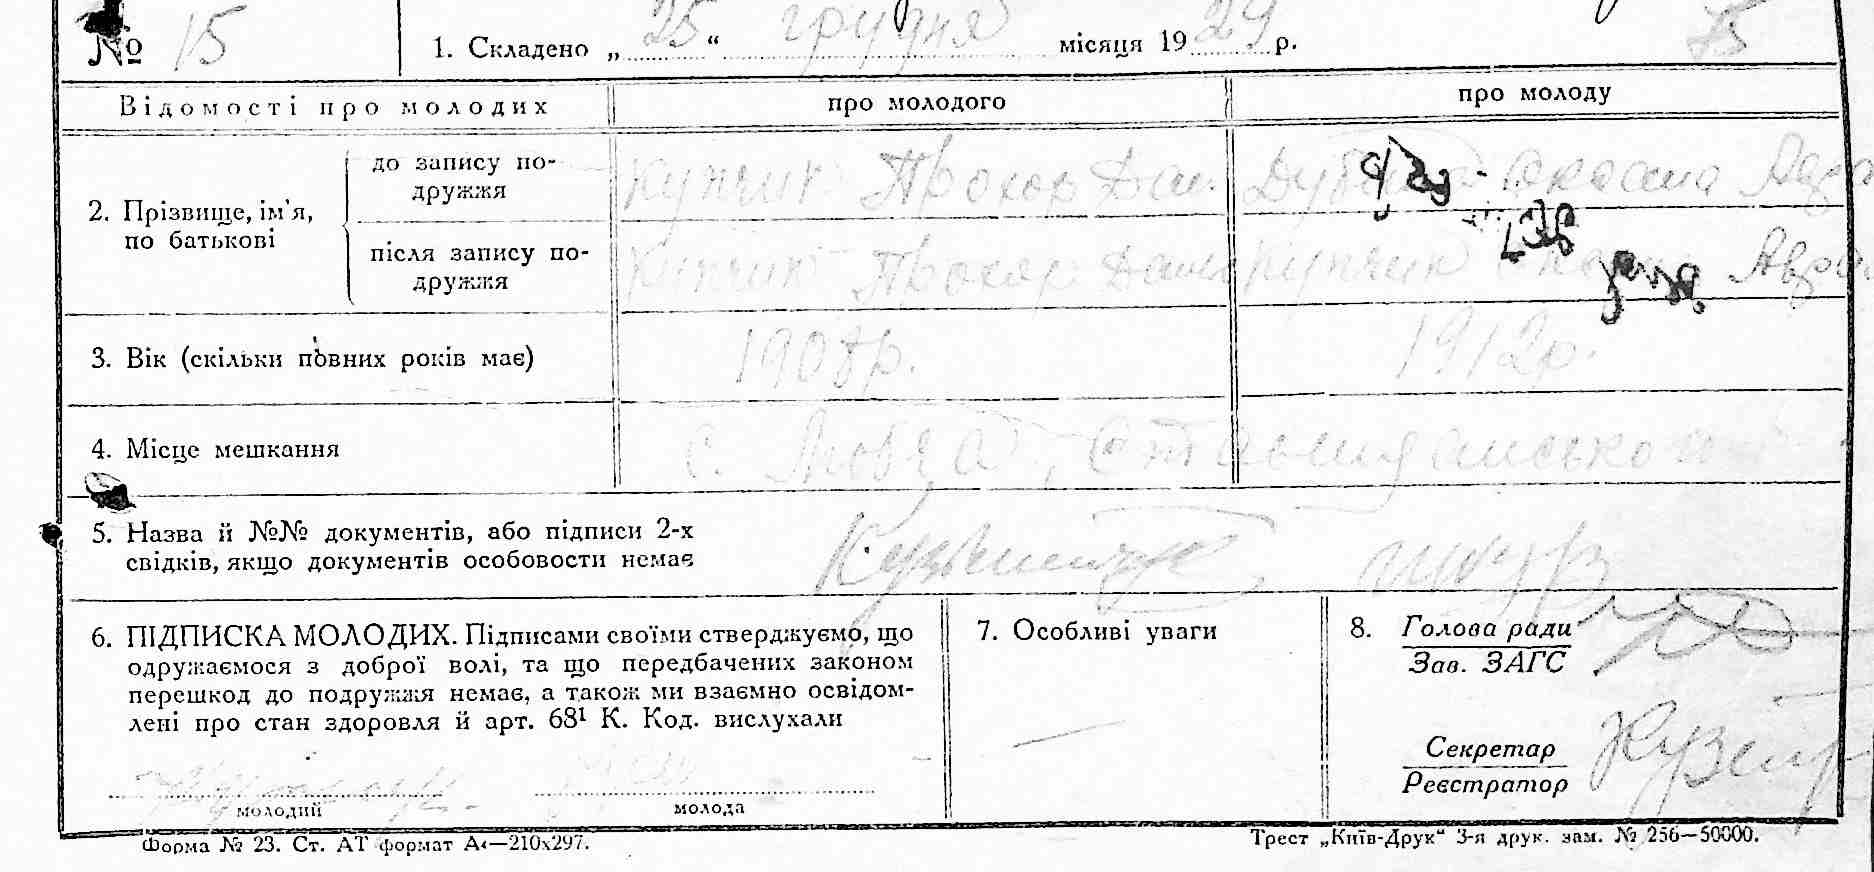 № 15 1. Складено „ 25 “ грудня місяця 19 29 р. 75
Відомості про молодих про молодого про молоду
2. Прізвище, ім'я, по батькові
до запису по-
дружжя
Купчик Прохор Дан.
після запису по-
дружжя
Купчик Прохор Купчик
3. Вік (скільки повних років має) 1908р. 1912р.
4. Місце мешкання с.
5. Назва й №№ документів, або підписи 2-х
свідків, якщо документів особовости немає
6. ПІДПИСКА МОЛОДИХ. Підписами своїми стверджуємо, що
одружаємося з доброї волі, та що передбачених законом
перешкод до подружжя немає, а також ми взаємно освідом-
лені про стан здоровля й арт. 68¹ К. Код. вислухали
молодий молода
7. Особливі уваги
—
8. Голова ради
Зав. ЗАГС
Секретар
Реєстратор
Форма № 23. Ст. АТ формат А4—210х297. Трест „Київ-Друк“ 3-я друк. зам. № 256—50000.